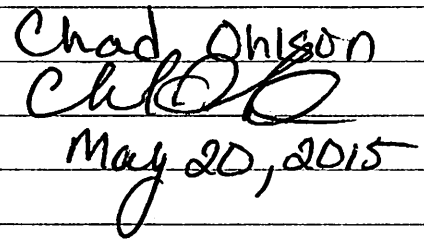 Chad Ohlson
May 20, 2015